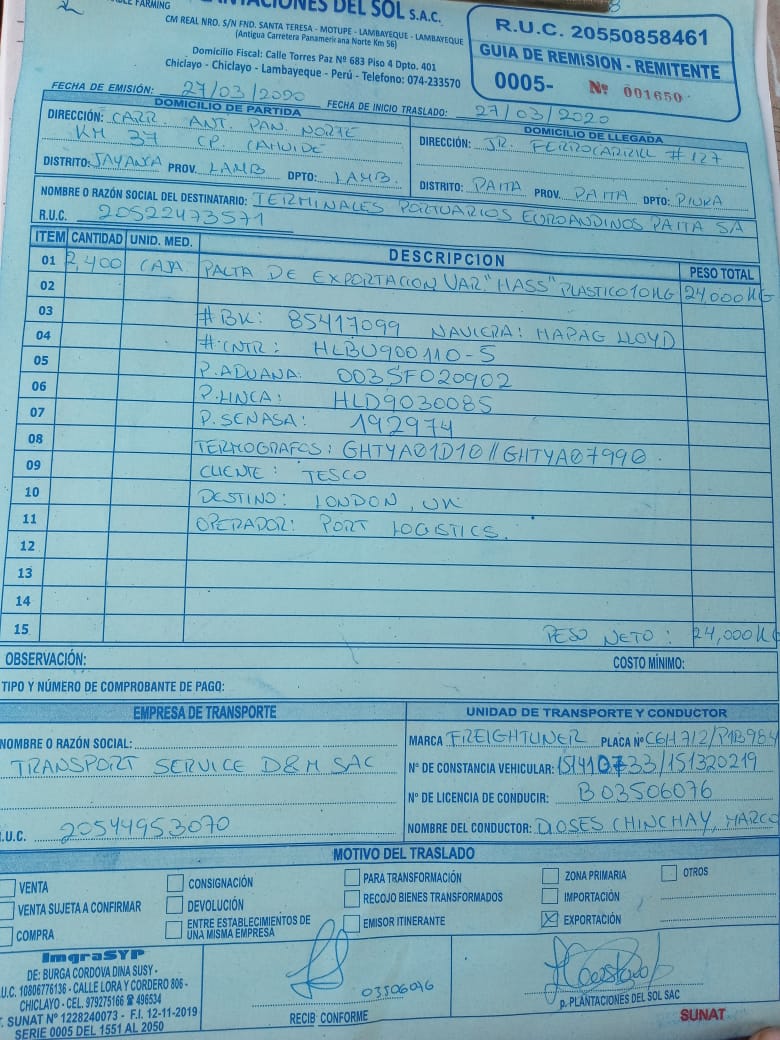 LE FARMING
PLANTACIONES DEL SOL S.A.C.
CM REAL NRO. S/N FND. SANTA TERESA - MOTUPE - LAMBAYEQUE - LAMBAYEQUE
(Antigua Carretera Panamericana Norte Km 56)
Domicilio Fiscal: Calle Torres Paz Nº 683 Piso 4 Dpto. 401
Chiclayo - Chiclayo - Lambayeque - Perú - Telefono: 074-233570
R.U.C. 20550858461
GUIA DE REMISION - REMITENTE
0005- Nº 001650
FECHA DE EMISIÓN: 27/03/2020 FECHA DE INICIO TRASLADO: 27/03/2020
DOMICILIO DE PARTIDA
DIRECCIÓN: CARR. ANT. PAN. NORTE
KM 37 CP. CAHUIDE
DISTRITO: JAYANCA PROV. LAMB DPTO: LAMB.
DOMICILIO DE LLEGADA
DIRECCIÓN: JR. FERROCARRIL # 127
DISTRITO: PAITA PROV. PAITA DPTO: PIURA
NOMBRE O RAZÓN SOCIAL DEL DESTINATARIO: TERMINALES PORTUARIOS EUROANDINOS PAITA SA
R.U.C. 20522473571
ITEM CANTIDAD UNID. MED. DESCRIPCION PESO TOTAL
01 2,400 CAJA PALTA DE EXPORTACION VAR "HASS" PLASTICO 10KG 24,000 KG
02
03 #BK: 85417099 NAVIERA: HAPAG LLOYD
04 #CNTR: HLBU900110-5
05 P.ADUANA: 0035F020902
06 P.LINEA: HLD9030085
07 P.SENASA: 192974
08 TERMOGRAFOS: GHTYA01D10 // GHTYA07990.
09 CLIENTE: TESCO
10 DESTINO: LONDON, UK
11 OPERADOR: PORT LOGISTICS.
12
13
14
15 PESO NETO: 24,000 KG
OBSERVACIÓN: COSTO MÍNIMO:
TIPO Y NÚMERO DE COMPROBANTE DE PAGO:
EMPRESA DE TRANSPORTE
NOMBRE O RAZÓN SOCIAL:
TRANSPORT SERVICE D&M SAC
.U.C. 20544953070
UNIDAD DE TRANSPORTE Y CONDUCTOR
MARCA FREIGHTLINER PLACA Nº C6H712/P1B984
Nº DE CONSTANCIA VEHICULAR: 151410733/151320219
Nº DE LICENCIA DE CONDUCIR: B03506076
NOMBRE DEL CONDUCTOR: DIOSES CHINCHAY, MARCO
MOTIVO DEL TRASLADO
VENTA
VENTA SUJETA A CONFIRMAR
COMPRA
CONSIGNACIÓN
DEVOLUCIÓN
ENTRE ESTABLECIMIENTOS DE
UNA MISMA EMPRESA
PARA TRANSFORMACIÓN
RECOJO BIENES TRANSFORMADOS
EMISOR ITINERANTE
ZONA PRIMARIA
IMPORTACIÓN
X EXPORTACIÓN
OTROS
ImgraSYP
DE: BURGA CORDOVA DINA SUSY -
.U.C. 10806776136 - CALLE LORA Y CORDERO 806 -
CHICLAYO - CEL. 979275166 ☎ 496534
. SUNAT Nº 1228240073 - F.I. 12-11-2019
SERIE 0005 DEL 1551 AL 2050
03506076
RECIB CONFORME
p. PLANTACIONES DEL SOL SAC
SUNAT